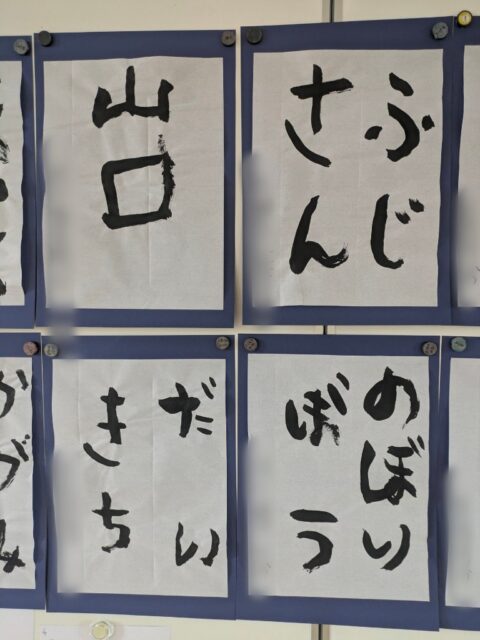 ふじ
さん
山口
のぼり
ぼう
だい
きち